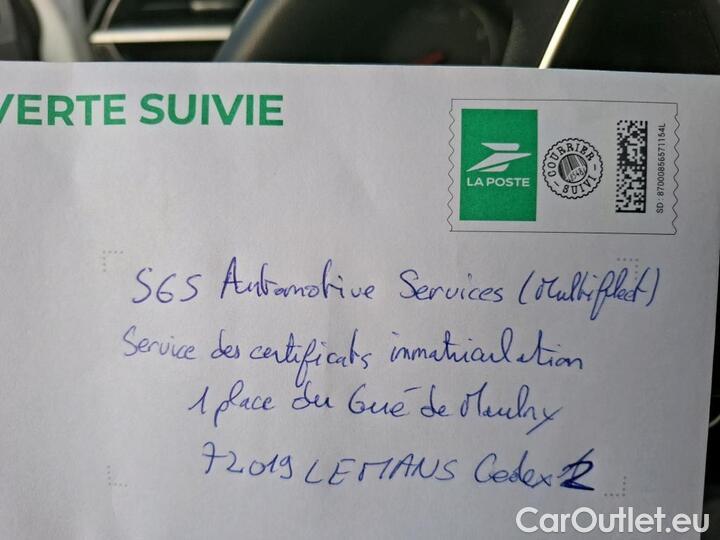 VERTE SUIVIE
LA POSTE
COURRIER
SUIVI
SD : 87000856571154L
SGS Automotive Services (Multiflect)
Service des certificats immatriculation
1 place du Gué de Maulny
72019 LEMANS Cedex 2
CarOutlet.eu